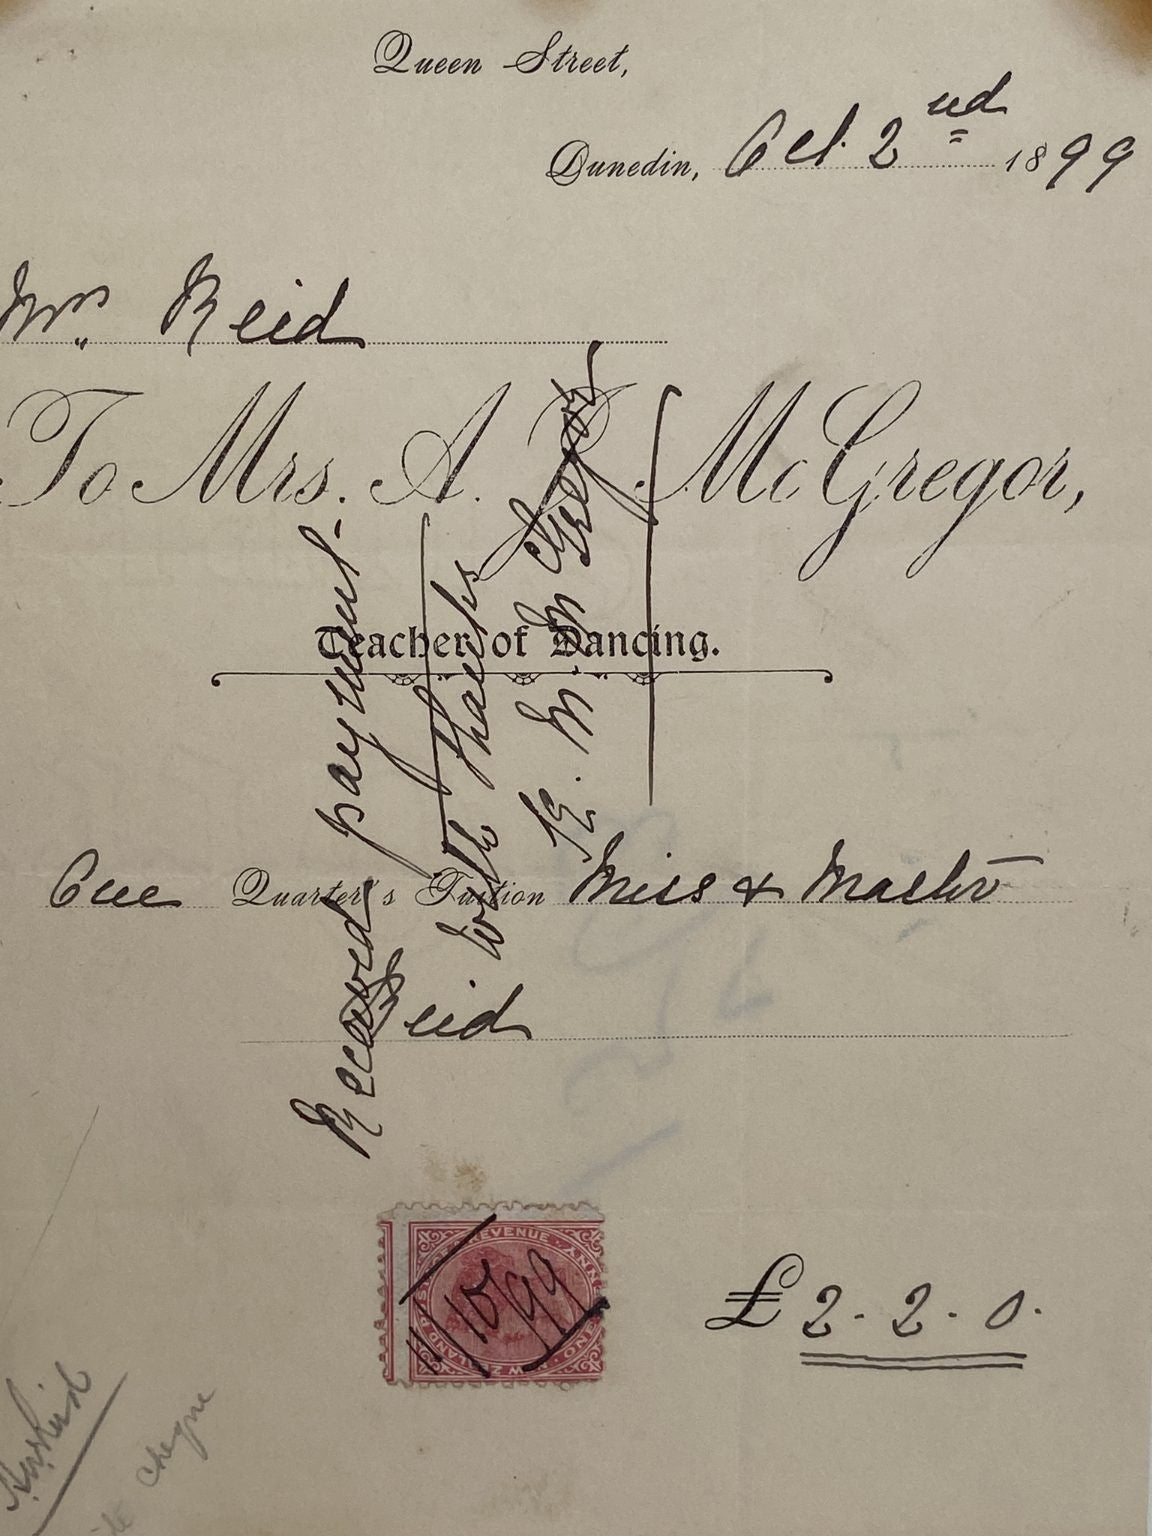 Queen Street,
Dunedin, Oct. 2nd 1899
Mrs Reid
To Mrs. A. R. McGregor,
Teacher of Dancing.
One Quarter's Tuition Miss & Master
Reid
Received payment.
with thanks
McGregor
REVENUE
11/10/99
£ 2. 2. 0.
cheque